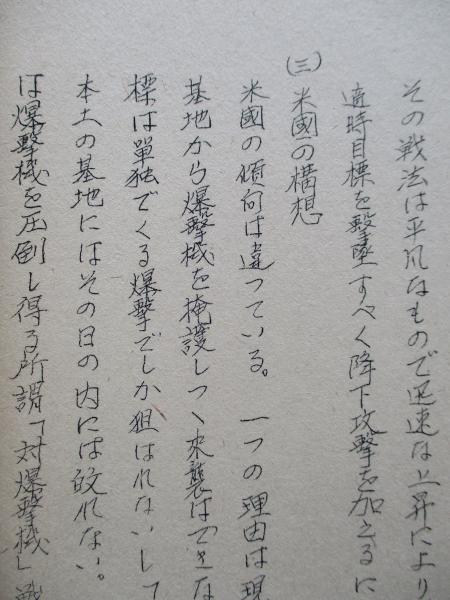 その戦法は平凡なもので迅速な上昇により
適時目標を撃墜すべく降下攻撃を加えるに
(三) 米國の構想
米國の傾向は違つている。一つの理由は現
基地から爆撃機を掩護しつゝ来襲はできな
標は單独でくる爆撃でしか狙はれないして
本土の基地にはその日の内には帰れない。
は爆撃機を圧倒し得る所謂「対爆撃機」戦